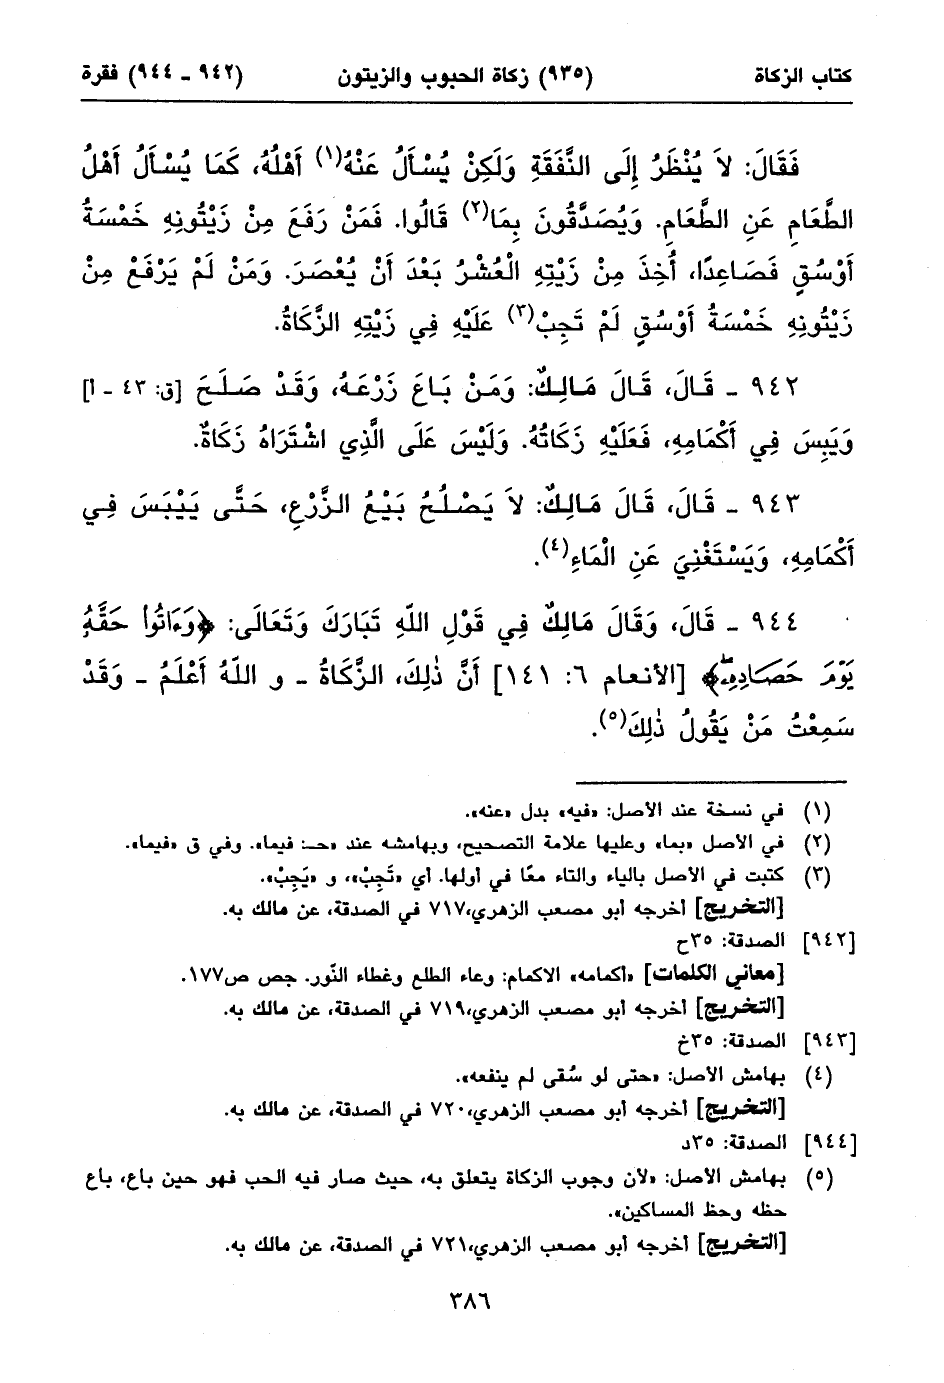 كتاب الزكاة (٩٣٥) زكاة الحبوب والزيتون (٩٤٢ ـ ٩٤٤) فقرة
فَقَالَ: لاَ يُنْظَرُ إِلَى النَّفَقَةِ وَلَكِنْ يُسْأَلُ عَنْهُ(١) أَهْلُهُ، كَمَا يُسْأَلُ أَهْلُ
الطَّعَامِ عَنِ الطَّعَامِ. وَيُصَدَّقُونَ بِمَا(٢) قَالُوا. فَمَنْ رَفَعَ مِنْ زَيْتُونِهِ خَمْسَةُ
أَوْسُقٍ فَصَاعِدًا، أُخِذَ مِنْ زَيْتِهِ الْعُشْرُ بَعْدَ أَنْ يُعْصَرَ. وَمَنْ لَمْ يَرْفَعْ مِنْ
زَيْتُونِهِ خَمْسَةُ أَوْسُقٍ لَمْ تَجِبْ(٣) عَلَيْهِ فِي زَيْتِهِ الزَّكَاةُ.
٩٤٢ ـ قَالَ، قَالَ مَالِكٌ: وَمَنْ بَاعَ زَرْعَهُ، وَقَدْ صَلَحَ [ق: ٤٣ ـ أ]
وَيَبِسَ فِي أَكْمَامِهِ، فَعَلَيْهِ زَكَاتُهُ. وَلَيْسَ عَلَى الَّذِي اشْتَرَاهُ زَكَاةٌ.
٩٤٣ ـ قَالَ، قَالَ مَالِكٌ: لاَ يَصْلُحُ بَيْعُ الزَّرْعِ، حَتَّى يَيْبَسَ فِي
أَكْمَامِهِ، وَيَسْتَغْنِيَ عَنِ الْمَاءِ(٤).
٩٤٤ ـ قَالَ، وَقَالَ مَالِكٌ فِي قَوْلِ اللّهِ تَبَارَكَ وَتَعَالَى: ﴿وَءَاتُواْ حَقَّهُ
يَوْمَ حَصَادِهِۦۖ﴾ [الأنعام ٦: ١٤١] أَنَّ ذٰلِكَ، الزَّكَاةُ ـ و اللّهُ أَعْلَمُ ـ وَقَدْ
سَمِعْتُ مَنْ يَقُولُ ذٰلِكَ(٥).
(١) في نسخة عند الأصل: «فيه» بدل «عنه».
(٢) في الأصل «بما» وعليها علامة التصحيح، وبهامشه عند «حـ: فيما». وفي ق «فيما».
(٣) كتبت في الأصل بالياء والتاء معًا في أولها. أي «تَجِبْ»، و «يَجِبْ».
[التخريج] أخرجه أبو مصعب الزهري،٧١٧ في الصدقة، عن مالك به.
[٩٤٢] الصدقة: ٣٥ح
[معاني الكلمات] «أكمامه» الاكمام: وعاء الطلع وغطاء النّور. جص ص١٧٧.
[التخريج] أخرجه أبو مصعب الزهري،٧١٩ في الصدقة، عن مالك به.
[٩٤٣] الصدقة: ٣٥خ
(٤) بهامش الأصل: «حتى لو سُقى لم ينفعه».
[التخريج] أخرجه أبو مصعب الزهري،٧٢٠ في الصدقة، عن مالك به.
[٩٤٤] الصدقة: ٣٥د
(٥) بهامش الأصل: «لأن وجوب الزكاة يتعلق به، حيث صار فيه الحب فهو حين باع، باع
حظه وحظ المساكين».
[التخريج] أخرجه أبو مصعب الزهري،٧٢١ في الصدقة، عن مالك به.
٣٨٦